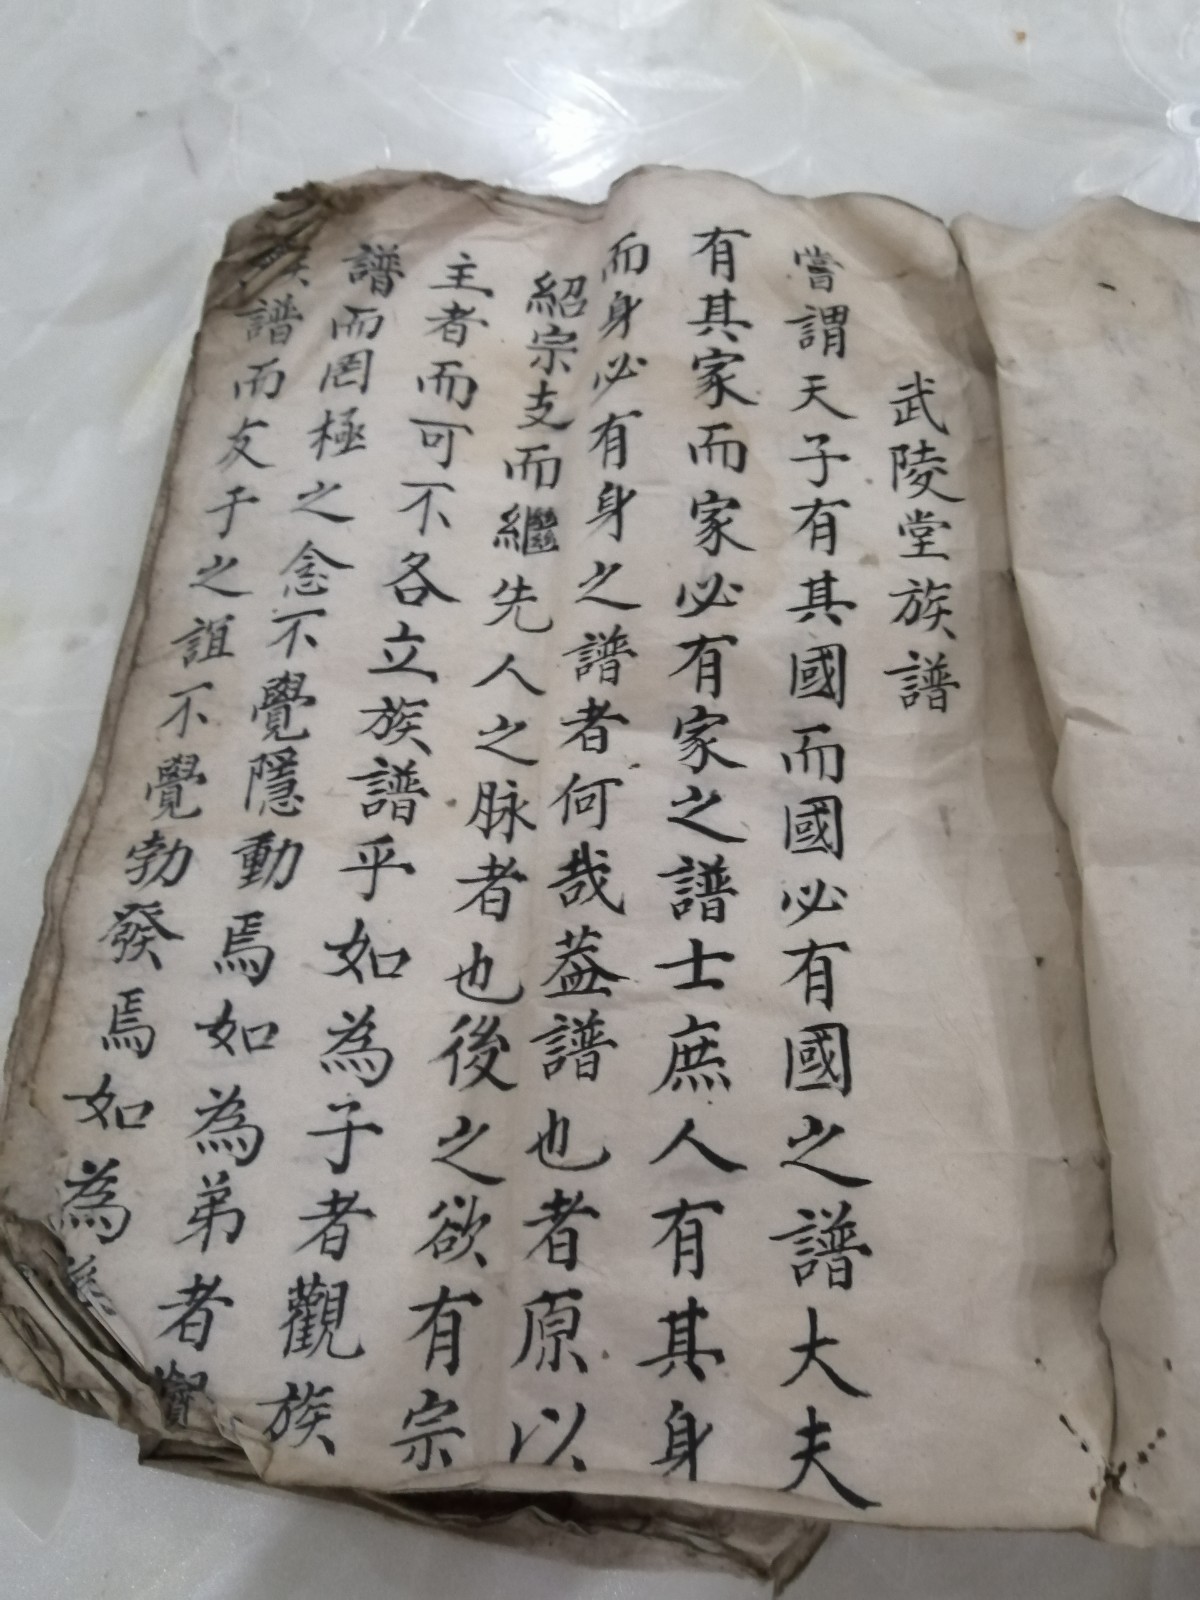 武陵堂族譜
嘗謂天子有其國而國必有國之譜大夫
有其家而家必有家之譜士庶人有其身
而身必有身之譜者何哉葢譜也者原以
紹宗支而繼先人之脉者也後之欲有宗
主者而可不各立族譜乎如為子者觀族
譜而罔極之念不覺隱動焉如為弟者
族譜而友于之誼不覺勃發焉如為